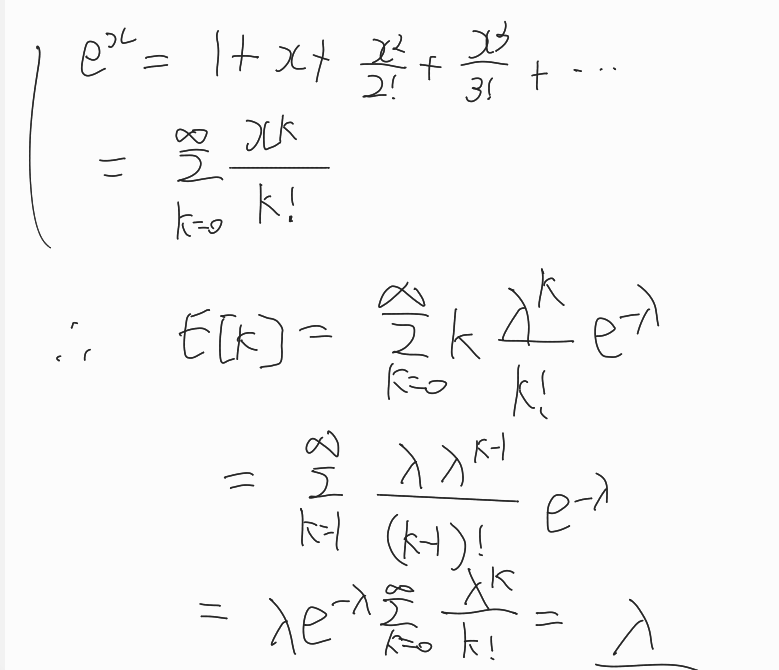 e^x = 1 + x + x^2/2! + x^3/3! + ...
= ∑_{k=0}^{∞} x^k/k!
∴ E[k] = ∑_{k=0}^{∞} k λ^k/k! e^{-λ}
= ∑_{k=1}^{∞} λ λ^{k-1}/(k-1)! e^{-λ}
= λe^{-λ} ∑_{k=0}^{∞} λ^k/k! = λ